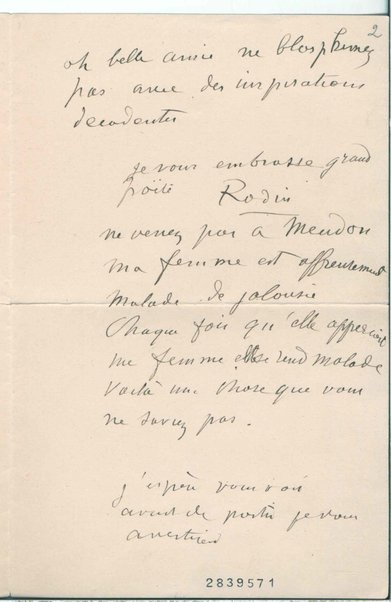 2
oh belle amie ne blasphemez
pas avec des inspirations
decadentes
je vous embrasse grand
poète Rodin
ne venez pas à Meudon
ma femme est affreusement
malade de jalousie
Chaque fois qu'elle apperçoit
une femme elle se rend malade
Voilà une chose que vous
ne saviez pas.
j'espère vous voir
avant de partir je vous
avertirai
2839571